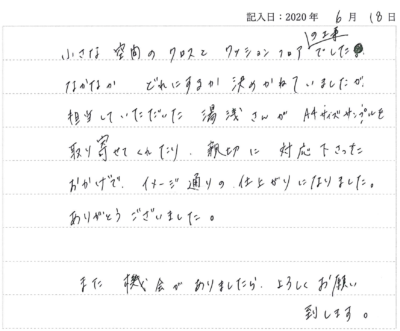 記入日：2020年 6月 18日
小さな 空間の クロスと クッションフロアの工事でした
なかなか どれにするか 決めかねていましたが、
担当していただいた 湯浅さんが A4サイズサンプルを
取り寄せてくれたり、親切に 対応下さった
おかげで、イメージ通りの 仕上がりになりました。
ありがとうございました。
また 機会がありましたら、よろしくお願い
致します。